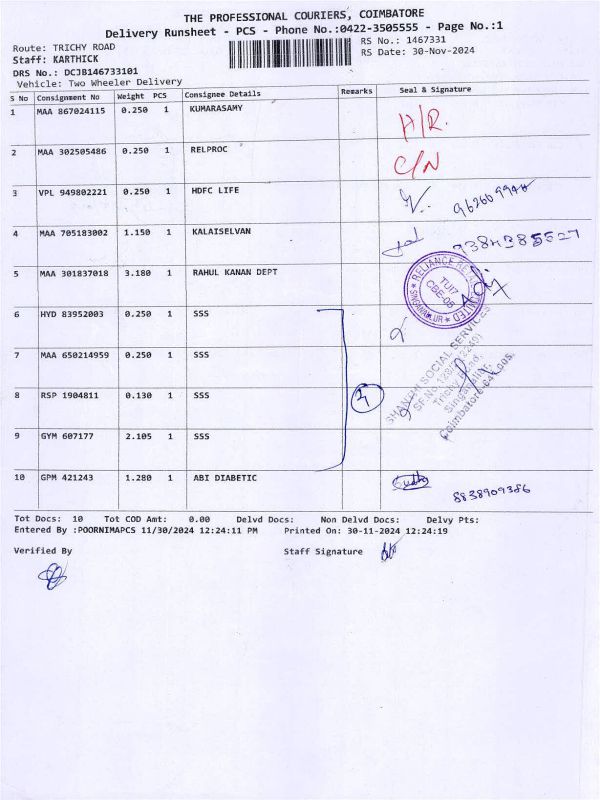 THE PROFESSIONAL COURIERS, COIMBATORE
Delivery Runsheet - PCS - Phone No.:0422-3505555 - Page No.:1
Route: TRICHY ROAD
RS No.: 1467331
Staff: KARTHICK
RS Date: 30-Nov-2024
DRS No.: DCJB146733101
Vehicle: Two Wheeler Delivery
S No Consignment No Weight PCS Consignee Details Remarks Seal & Signature
1 MAA 867024115 0.250 1 KUMARASAMY H/R.
2 MAA 302505486 0.250 1 RELPROC C/N
3 VPL 949802221 0.250 1 HDFC LIFE
4 MAA 705183002 1.150 1 KALAISELVAN
5 MAA 301837018 3.180 1 RAHUL KANAN DEPT
TU17
CBE-05
6 HYD 83952003 0.250 1 SSS
7 MAA 650214959 0.250 1 SSS
SHANTHI SOCIAL SERVICES
8 RSP 1904811 0.130 1 SSS 4
Trichy Road,
9 GYM 607177 2.105 1 SSS
10 GPM 421243 1.280 1 ABI DIABETIC
8838909386
Tot Docs: 10 Tot COD Amt: 0.00 Delvd Docs: Non Delvd Docs: Delvy Pts:
Entered By :POORNIMAPCS 11/30/2024 12:24:11 PM Printed On: 30-11-2024 12:24:19
Verified By Staff Signature